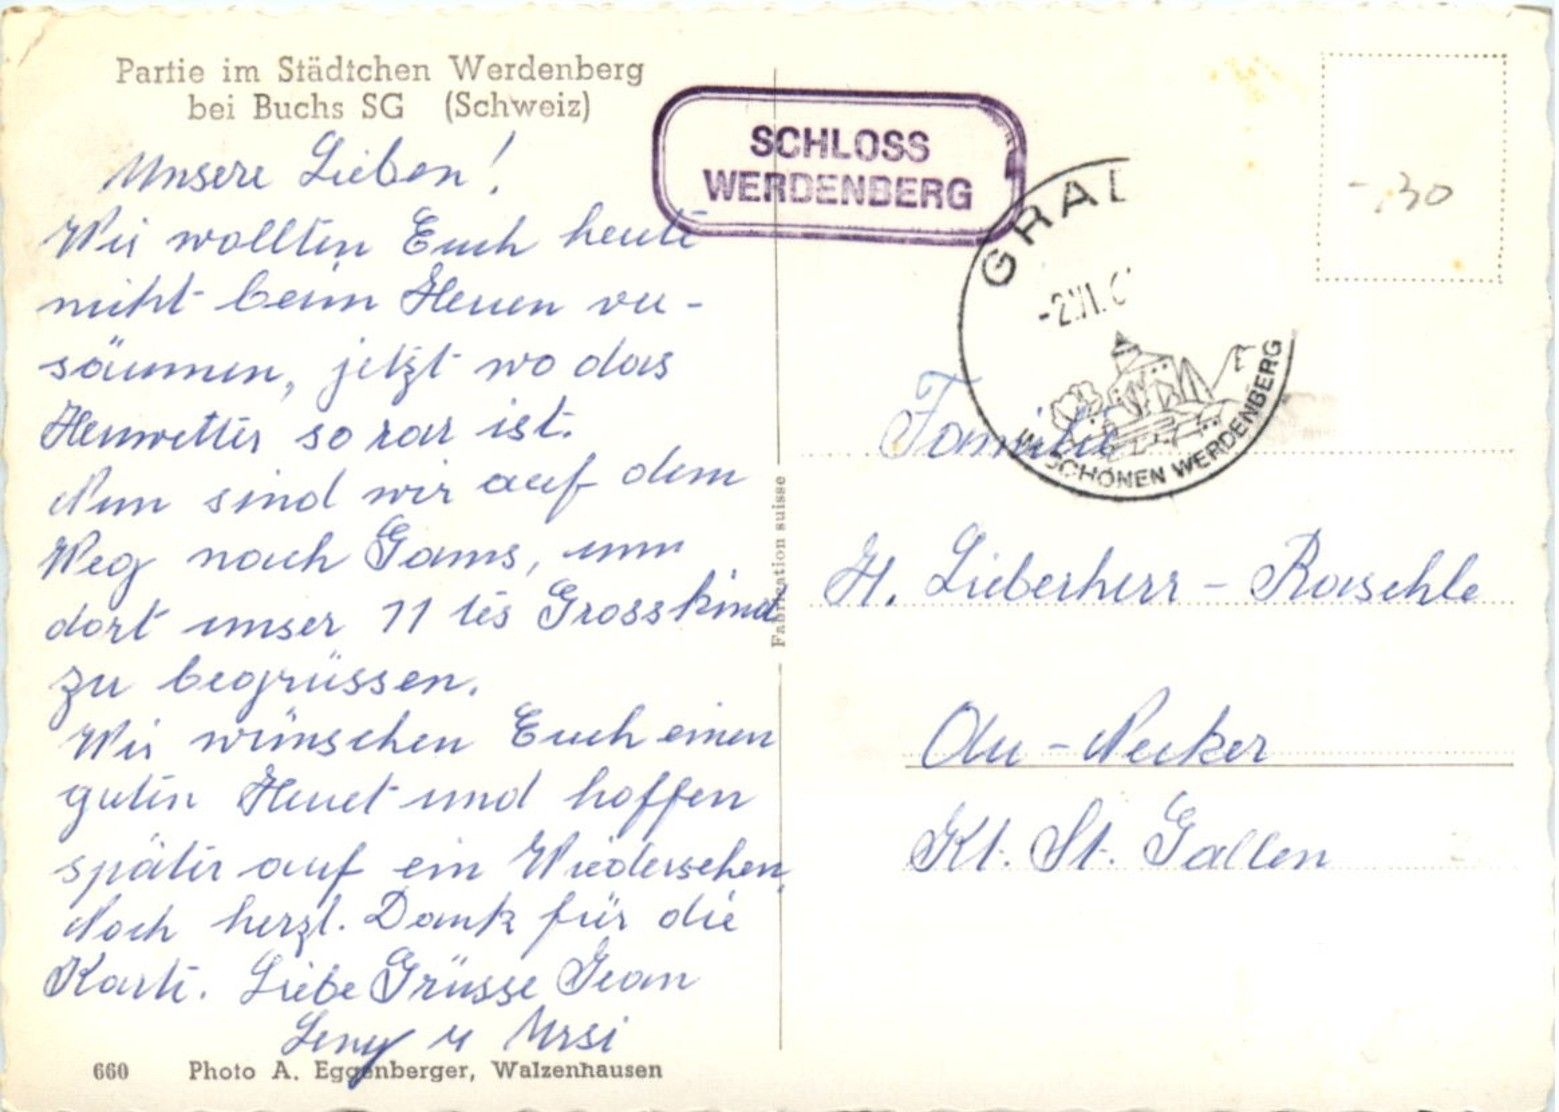 Partie im Städtchen Werdenberg
bei Buchs SG (Schweiz)
Unsere Lieben!
Wir wollten Euch heute
nicht beim Heuen ver-
säumen, jetzt wo das
Heuwetter so rar ist.
Nun sind wir auf dem
Weg nach Gams, um
dort unser 11tes Grosskind
zu begrüssen.
Wir wünschen Euch einen
guten Heuet und hoffen
später auf ein Wiedersehen,
Noch herzl. Dank für die
Karte. Liebe Grüsse Jean
Leny u Ursi
660 Photo A. Eggenberger, Walzenhausen
Fabrication suisse
SCHLOSS
WERDENBERG
GRA
-2.VI.
IM SCHÖNEN WERDENBERG
-.30
Familie
H. Lieberherr - Raschle
Au - Necker
Kt. St. Gallen